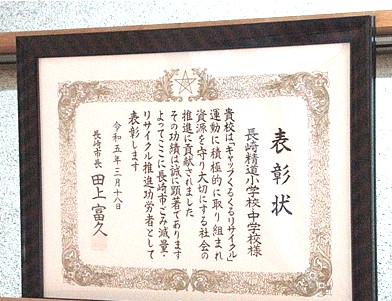 表彰状
長崎精道小学校中学校様
貴校は「キャップくるくるリサイクル」
運動に積極的に取り組まれ
資源を守り大切にする社会の
推進に貢献されました
その功績は誠に顕著であります
よってここに長崎市ごみ減量・
リサイクル推進功労者として
表彰します
令和五年三月十八日
長崎市長 田上富久